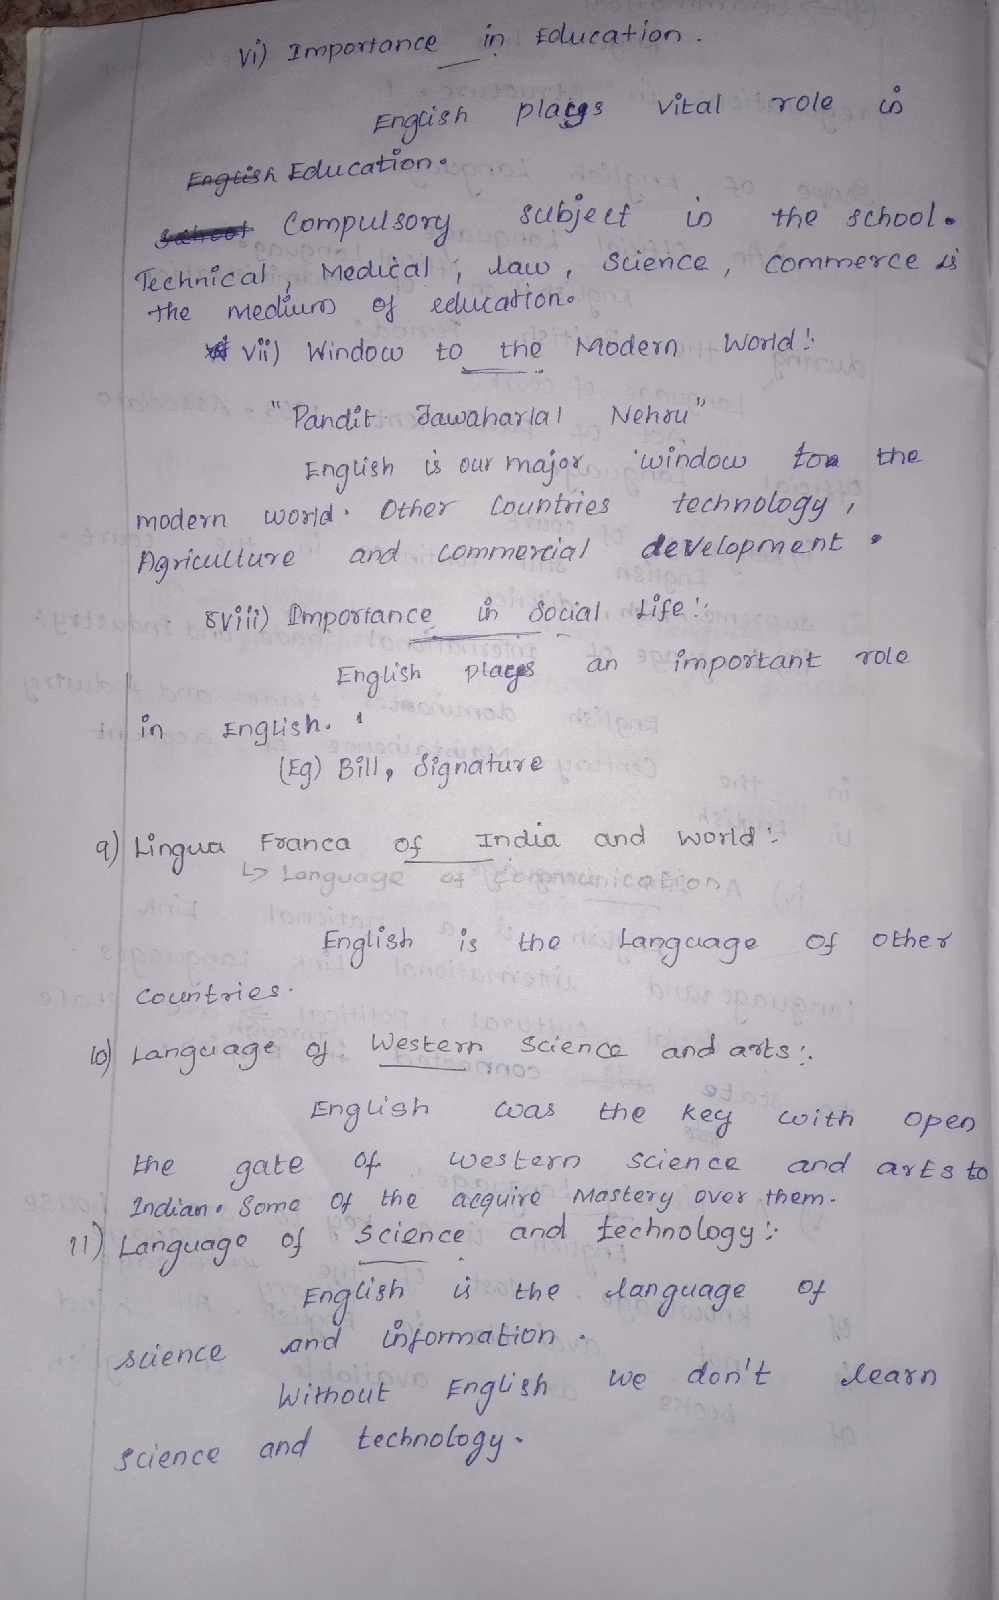 vi) Importance in Education.
English plays vital role in
English Education.
school Compulsory subject in the school.
Technical, Medical, law, Science, commerce is
the medium of education.
vii) Window to the Modern World:
"Pandit Jawaharlal Nehru"
English is our major window for the
modern world. Other Countries technology,
Agriculture and commercial development.
8viii) Importance in Social Life:
English plays an important role
in English.
(Eg) Bill, Signature
9) Lingua Franca of India and world:
↳ Language of communication
English is the Language of other
countries.
10) Language of Western Science and arts:
English was the key with open
the gate of western science and arts to
Indian. Some of the acquire Mastery over them.
11) Language of Science and technology:
English is the language of
science and information.
Without English we don't learn
science and technology.